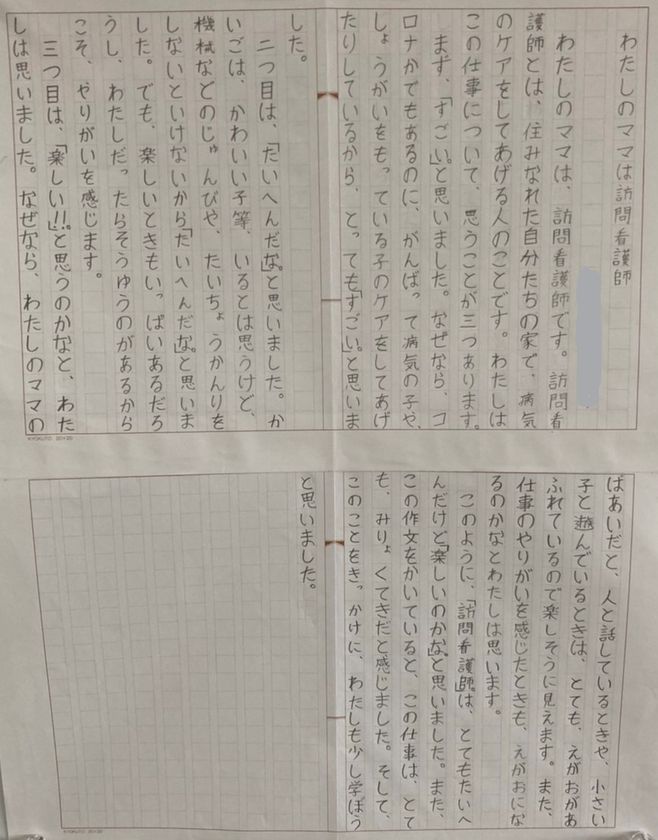 わたしのママは訪問看護師
わたしのママは、訪問看護師です。訪問看
護師とは、住みなれた自分たちの家で、病気
のケアをしてあげる人のことです。わたしは
この仕事について、思うことが三つあります。
まず、「すごい。」と思いました。なぜなら、コ
ロナかでもあるのに、がんばって病気の子や、
しょうがいをもっている子のケアをしてあげ
たりしているから、とっても「すごい。」と思いま
した。
二つ目は、「たいへんだな。」と思いました。か
いごは、かわいい子等、いるとは思うけど、
機械などのじゅんびや、たいちょうかんりを
しないといけないから「たいへんだな。」と思いま
した。でも、楽しいときもいっぱいあるだろ
うし、わたしだったらそうゆうのがあるから
こそ、やりがいを感じます。
三つ目は、「楽しい!!」と思うのかなと、わた
しは思いました。なぜなら、わたしのママの
KYOKUTO 20×20
ばあいだと、人と話しているときや、小さい
子と遊んでいるときは、とても、えがおがあ
ふれているので楽しそうに見えます。また、
仕事のやりがいを感じたときも、えがおにな
るのかなとわたしは思います。
このように、「訪問看護師」は、とてもたいへ
んだけど「楽しいのかな。」と思いました。また、
この作文をかいていると、この仕事は、とて
も、みりょくてきだと感じました。そして、
このことをきっかけに、わたしも少し学ぼう
と思いました。
KYOKUTO 20×20